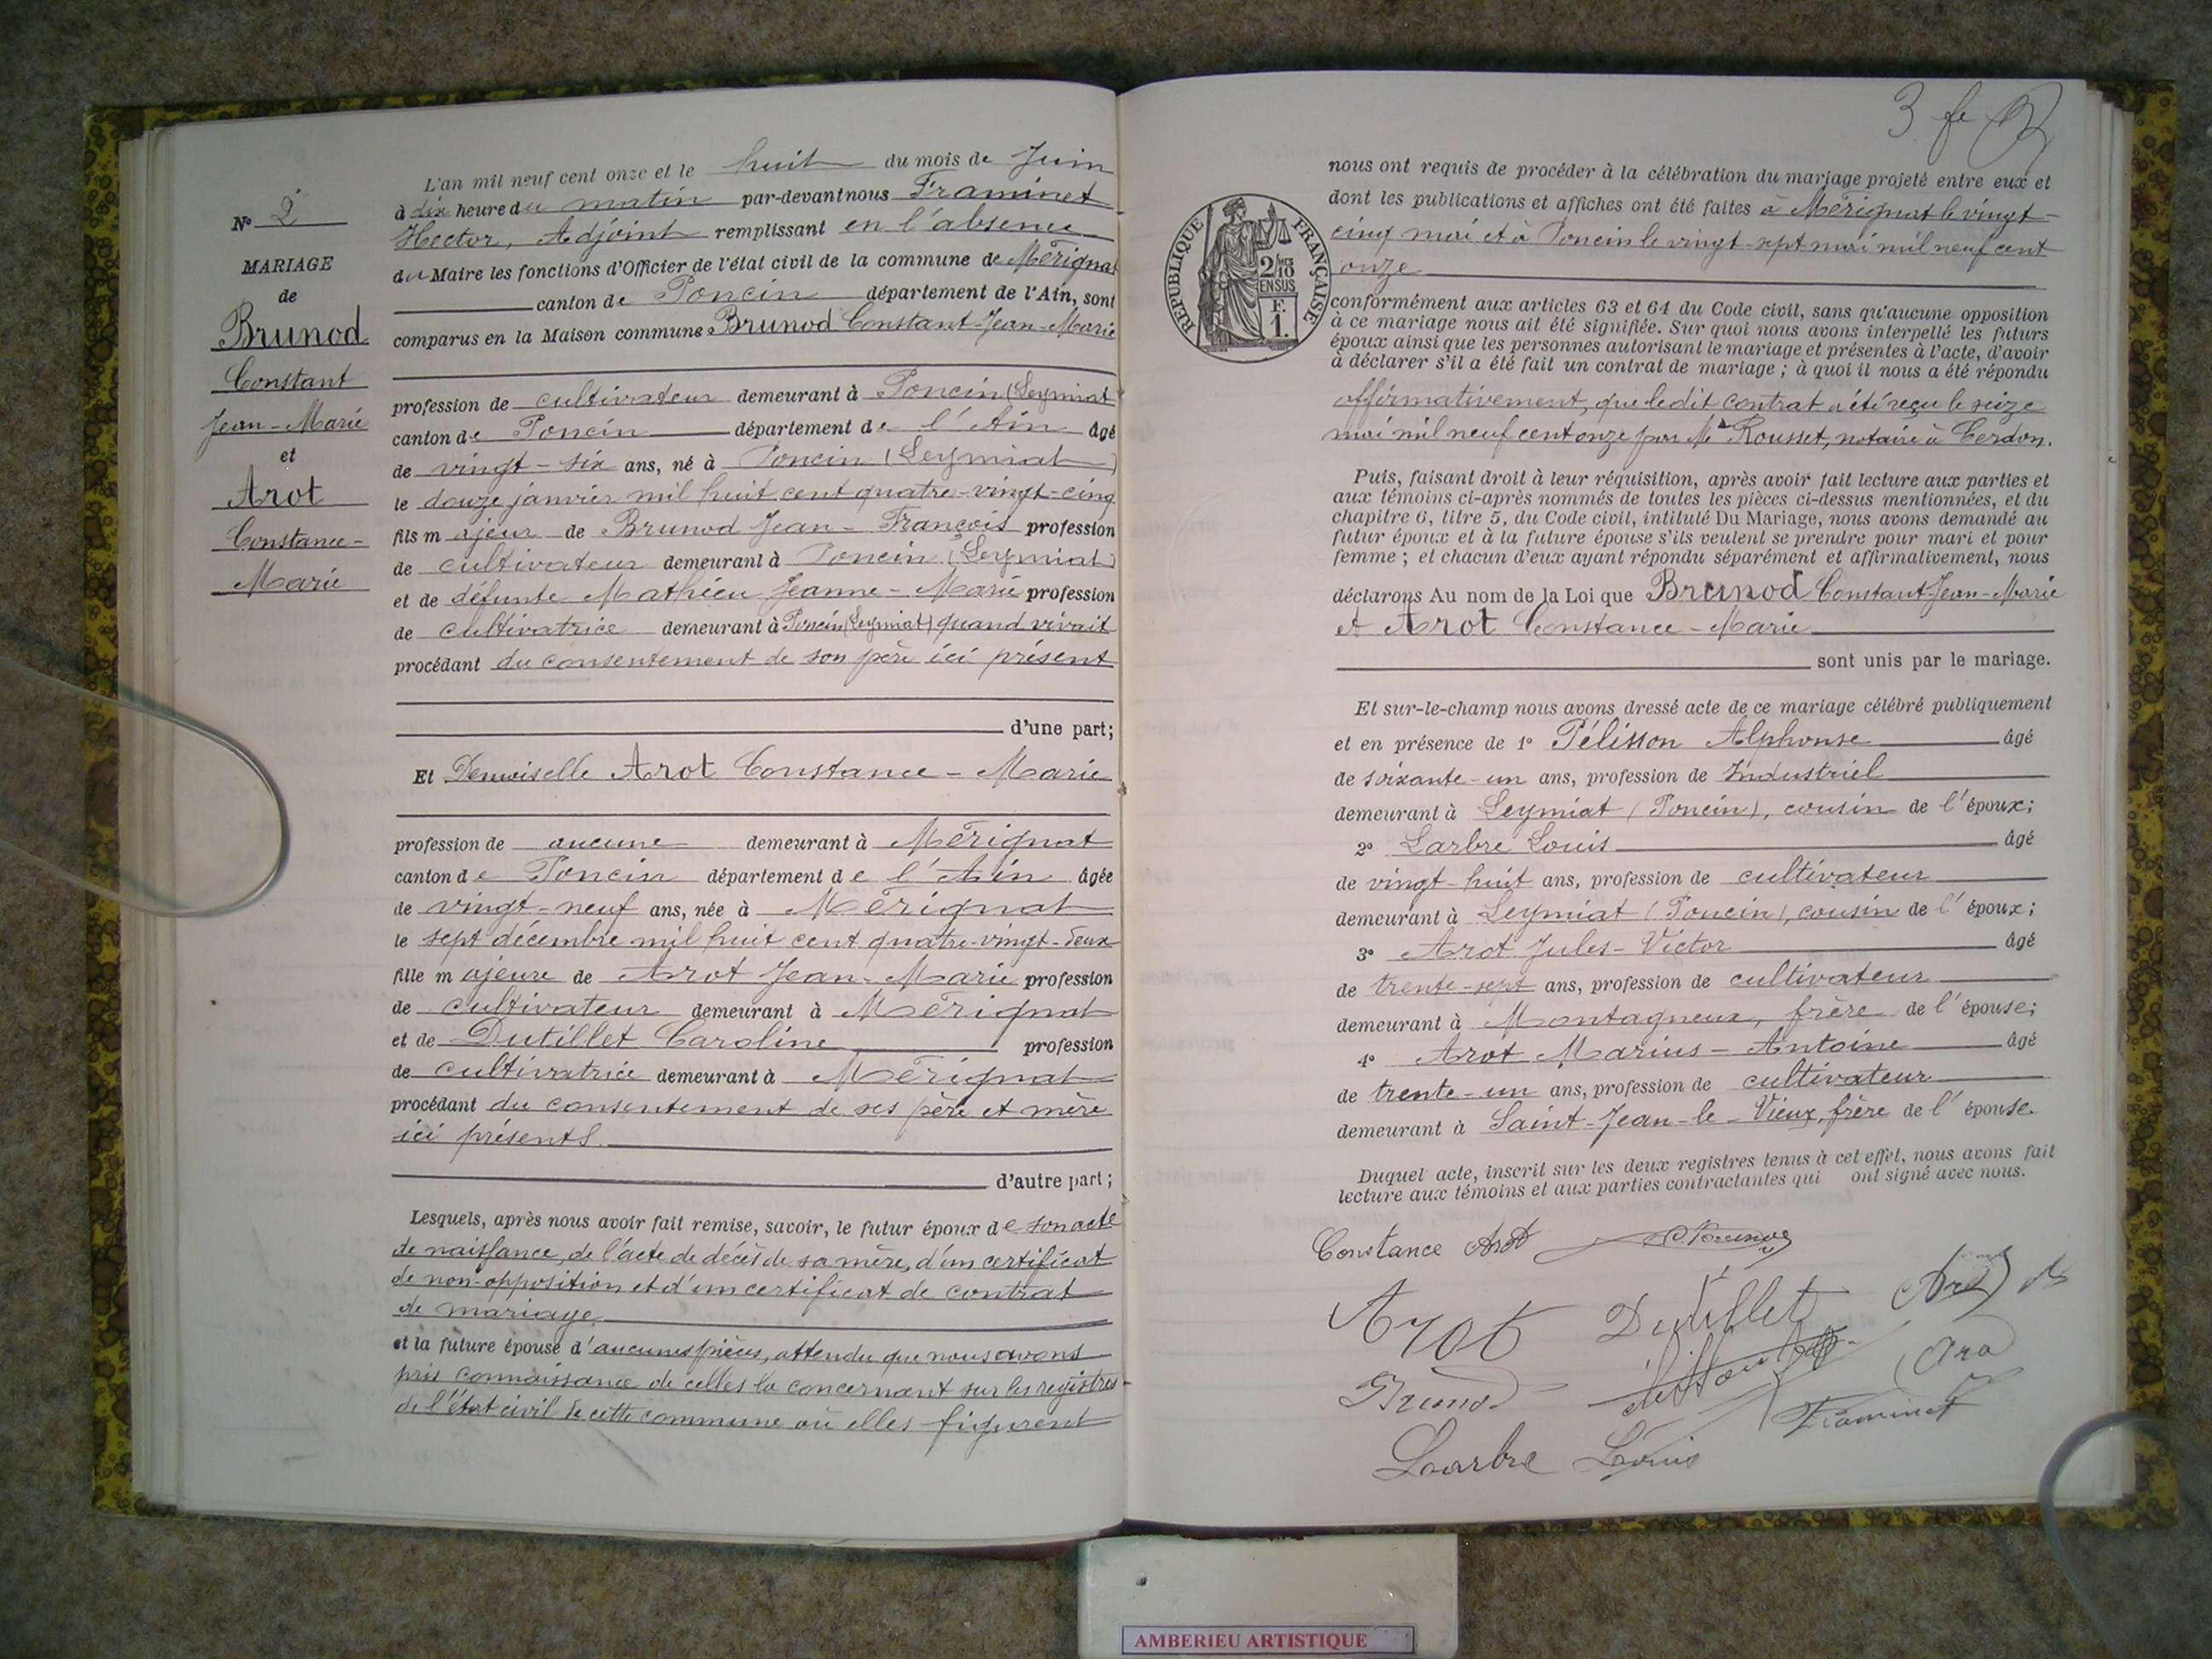 N° 2
MARIAGE
de
Brunod
Constant
Jean-Marie
et
Arot
Constance-
Marie
L'an mil neuf cent onze et le huit du mois de Juin
à dix heure du matin par-devant nous Framinet
Hector, Adjoint remplissant en l'absence
du Maire les fonctions d'Officier de l'état civil de la commune de Mérignat
canton de Poncin département de l'Ain, sont
comparus en la Maison commune Brunod Constant-Jean-Marie
profession de cultivateur demeurant à Poncin (Leymiat
canton de Poncin département de l'Ain âgé
de vingt-six ans, né à Poncin (Leymiat)
le douze janvier mil huit cent quatre-vingt-cinq
fils majeur de Brunod Jean-François profession
de cultivateur demeurant à Poncin (Leymiat)
et de défunte Mathieu Jeanne-Marie profession
de cultivatrice demeurant à Poncin (Leymiat) quand vivait
procédant du consentement de son père ici présent
d'une part;
Et Demoiselle Arot Constance-Marie
profession de aucune demeurant à Mérignat
canton de Poncin département de l'Ain âgée
de vingt-neuf ans, née à Mérignat
le sept décembre mil huit cent quatre-vingt-deux
fille majeure de Arot Jean-Marie profession
de cultivateur demeurant à Mérignat
et de Dutillet Caroline profession
de cultivatrice demeurant à Mérignat
procédant du consentement de ses père et mère
ici présents.
d'autre part;
Lesquels, après nous avoir fait remise, savoir, le futur époux de son acte
de naissance, de l'acte de décès de sa mère, d'un certificat
de non-opposition et d'un certificat de contrat
de mariage
et la future épouse d'aucunes pièces, attendu que nous avons
pris connaissance de celles la concernant sur les registres
de l'état civil de cette commune où elles figurent
3 fe
RÉPUBLIQUE FRANÇAISE
2/10 EN SUS
F. 1.
nous ont requis de procéder à la célébration du mariage projeté entre eux et
dont les publications et affiches ont été faites à Mérignat le vingt-
cinq mai et à Poncin le vingt-sept mai mil neuf cent
onze
conformément aux articles 63 et 64 du Code civil, sans qu'aucune opposition
à ce mariage nous ait été signifiée. Sur quoi nous avons interpellé les futurs
époux ainsi que les personnes autorisant le mariage et présentes à l'acte, d'avoir
à déclarer s'il a été fait un contrat de mariage; à quoi il nous a été répondu
affirmativement, que ledit contrat a été reçu le seize
mai mil neuf cent onze par Me Rousset, notaire à Cerdon.
Puis, faisant droit à leur réquisition, après avoir fait lecture aux parties et
aux témoins ci-après nommés de toutes les pièces ci-dessus mentionnées, et du
chapitre 6, titre 5, du Code civil, intitulé Du Mariage, nous avons demandé au
futur époux et à la future épouse s'ils veulent se prendre pour mari et pour
femme; et chacun d'eux ayant répondu séparément et affirmativement, nous
déclarons Au nom de la Loi que Brunod Constant-Jean-Marie
et Arot Constance-Marie
sont unis par le mariage.
Et sur-le-champ nous avons dressé acte de ce mariage célébré publiquement
et en présence de 1° Pélisson Alphonse âgé
de soixante-un ans, profession de Industriel
demeurant à Leymiat (Poncin), cousin de l'époux;
2° Larbre Louis âgé
de vingt-huit ans, profession de cultivateur
demeurant à Leymiat (Poncin), cousin de l'époux;
3° Arot Jules-Victor âgé
de trente-sept ans, profession de cultivateur
demeurant à Montagneux, frère de l'épouse;
4° Arot Marius-Antoine âgé
de trente-un ans, profession de cultivateur
demeurant à Saint-Jean-le-Vieux, frère de l'épouse.
Duquel acte, inscrit sur les deux registres tenus à cet effet, nous avons fait
lecture aux témoins et aux parties contractantes qui ont signé avec nous.
Constance Arot C Brunod
Arot Dutillet
Brunod
Framinet
Larbre Louis
AMBERIEU ARTISTIQUE